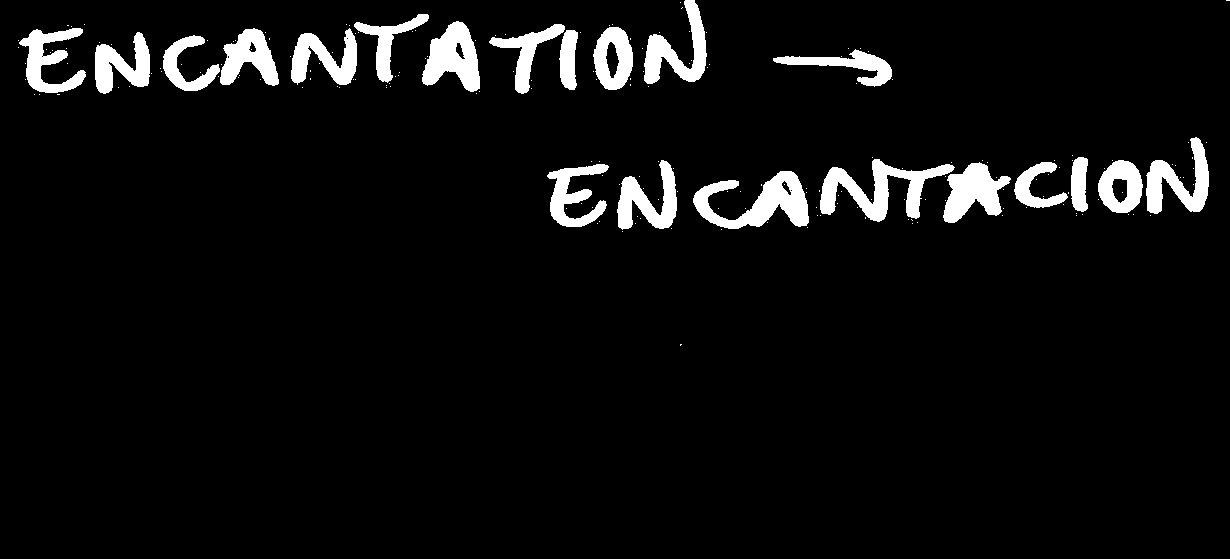 ENCANTATION →
ENCANTACION